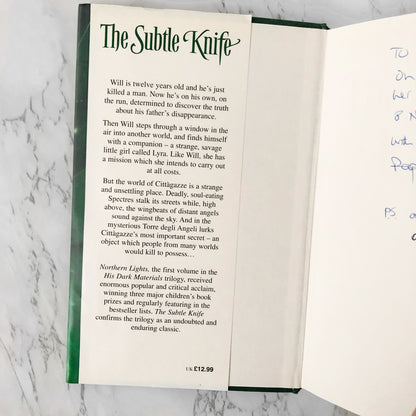 The Subtle Knife
Will is twelve years old and he's just
killed a man. Now he's on his own, on
the run, determined to discover the truth
about his father's disappearance.
Then Will steps through a window in the
air into another world, and finds himself
with a companion – a strange, savage
little girl called Lyra. Like Will, she has
a mission which she intends to carry out
at all costs.
But the world of Cittàgazze is a strange
and unsettling place. Deadly, soul-eating
Spectres stalk its streets while, high
above, the wingbeats of distant angels
sound against the sky. And in the
mysterious Torre degli Angeli lurks
Cittàgazze's most important secret – an
object which people from many worlds
would kill to possess…
Northern Lights, the first volume in the
His Dark Materials trilogy, received
enormous popular and critical acclaim,
winning three major children's book
prizes and regularly featuring in the
bestseller lists. The Subtle Knife
confirms the trilogy as an undoubted and
enduring classic.
UK £12.99
TO
On
her
with
PS